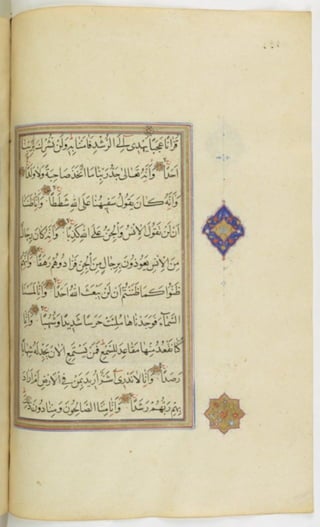 قُرْآنًا عَجَبًا يَهْدِي إِلَى الرُّشْدِ فَآمَنَّا بِهِ وَلَنْ نُشْرِكَ بِرَبِّنَا
أَحَدًا وَأَنَّهُ تَعَالَى جَدُّ رَبِّنَا مَا اتَّخَذَ صَاحِبَةً وَلَا وَلَدًا
وَأَنَّهُ كَانَ يَقُولُ سَفِيهُنَا عَلَى اللهِ شَطَطًا وَأَنَّا ظَنَنَّا
أَنْ لَنْ تَقُولَ الْإِنْسُ وَالْجِنُّ عَلَى اللهِ كَذِبًا وَأَنَّهُ كَانَ رِجَالٌ
مِنَ الْإِنْسِ يَعُوذُونَ بِرِجَالٍ مِنَ الْجِنِّ فَزَادُوهُمْ رَهَقًا وَأَنَّهُمْ
ظَنُّوا كَمَا ظَنَنْتُمْ أَنْ لَنْ يَبْعَثَ اللهُ أَحَدًا وَأَنَّا لَمَسْنَا
السَّمَاءَ فَوَجَدْنَاهَا مُلِئَتْ حَرَسًا شَدِيدًا وَشُهُبًا وَأَنَّا
كُنَّا نَقْعُدُ مِنْهَا مَقَاعِدَ لِلسَّمْعِ فَمَنْ يَسْتَمِعِ الْآنَ يَجِدْ لَهُ شِهَابًا
رَصَدًا وَأَنَّا لَا نَدْرِي أَشَرٌّ أُرِيدَ بِمَنْ فِي الْأَرْضِ أَمْ أَرَادَ
بِهِمْ رَبُّهُمْ رَشَدًا وَأَنَّا مِنَّا الصَّالِحُونَ وَمِنَّا دُونَ ذَلِكَ